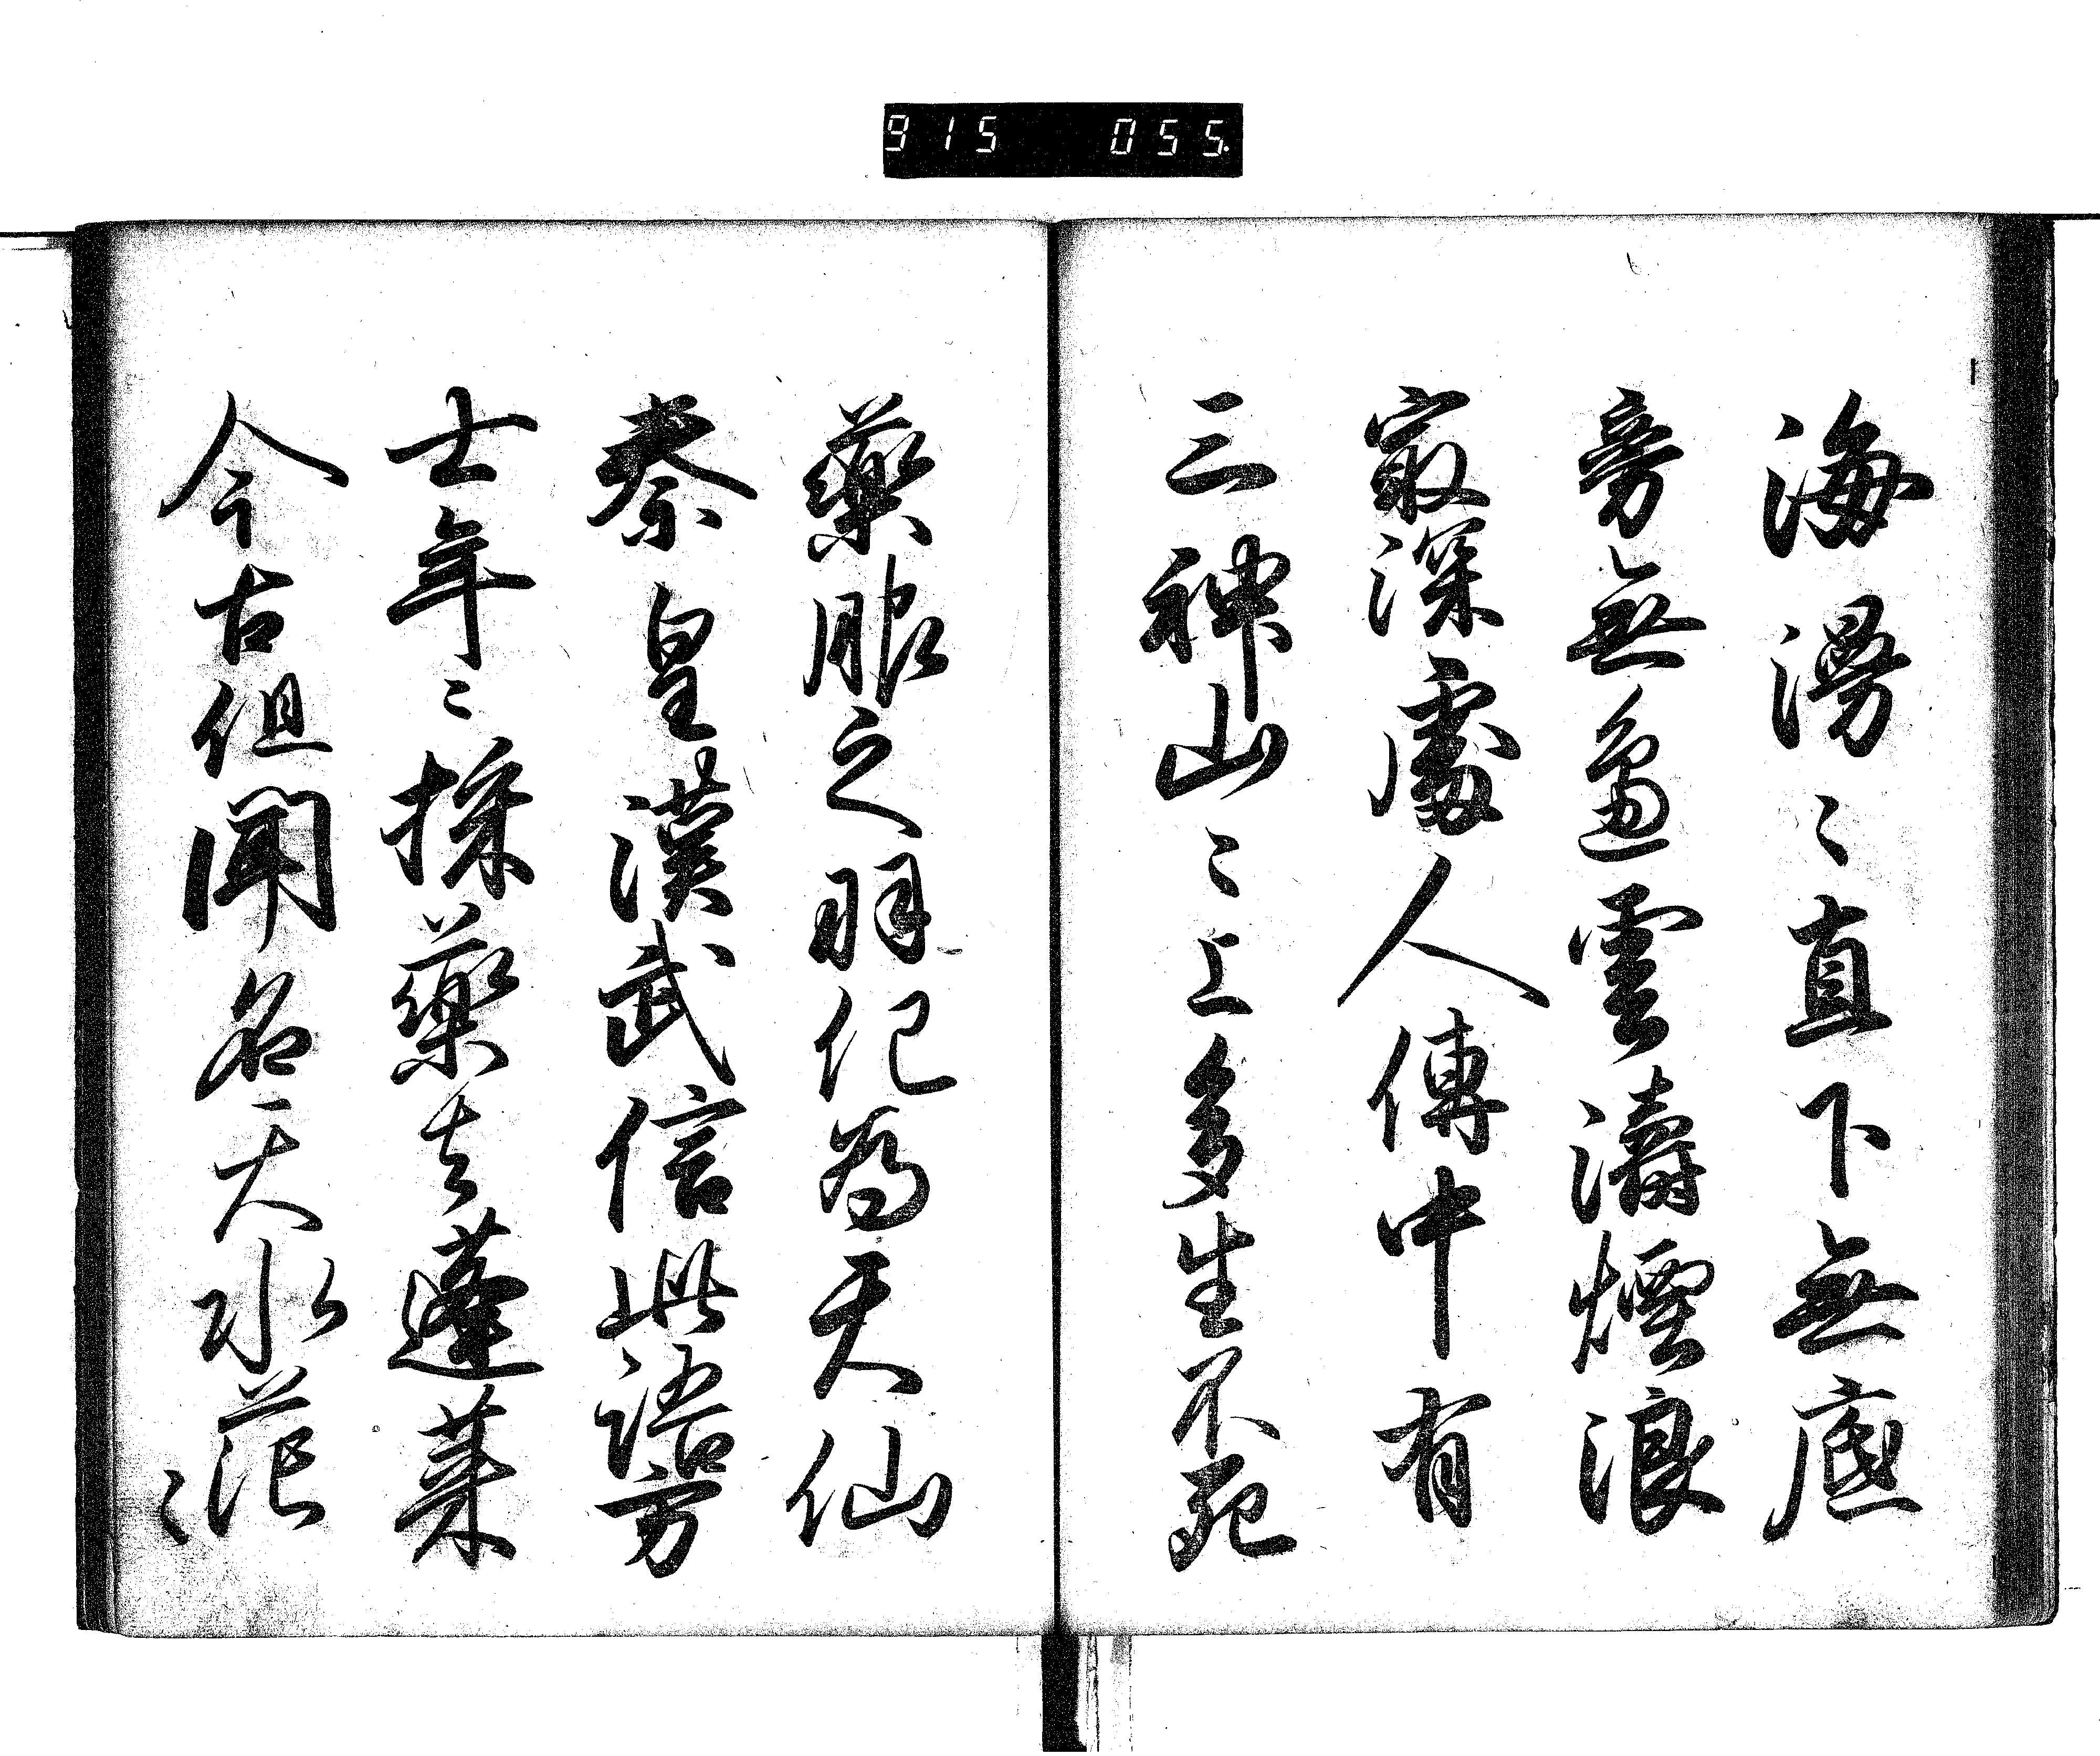 915 055.
海漫〻直下無底
旁無邊雲濤煙浪
冣深處人傳中有
三神山〻上多生不死
藥服之羽化為天仙
秦皇漢武信此語方
士年〻採藥去蓬萊
今古但聞名天水茫〻